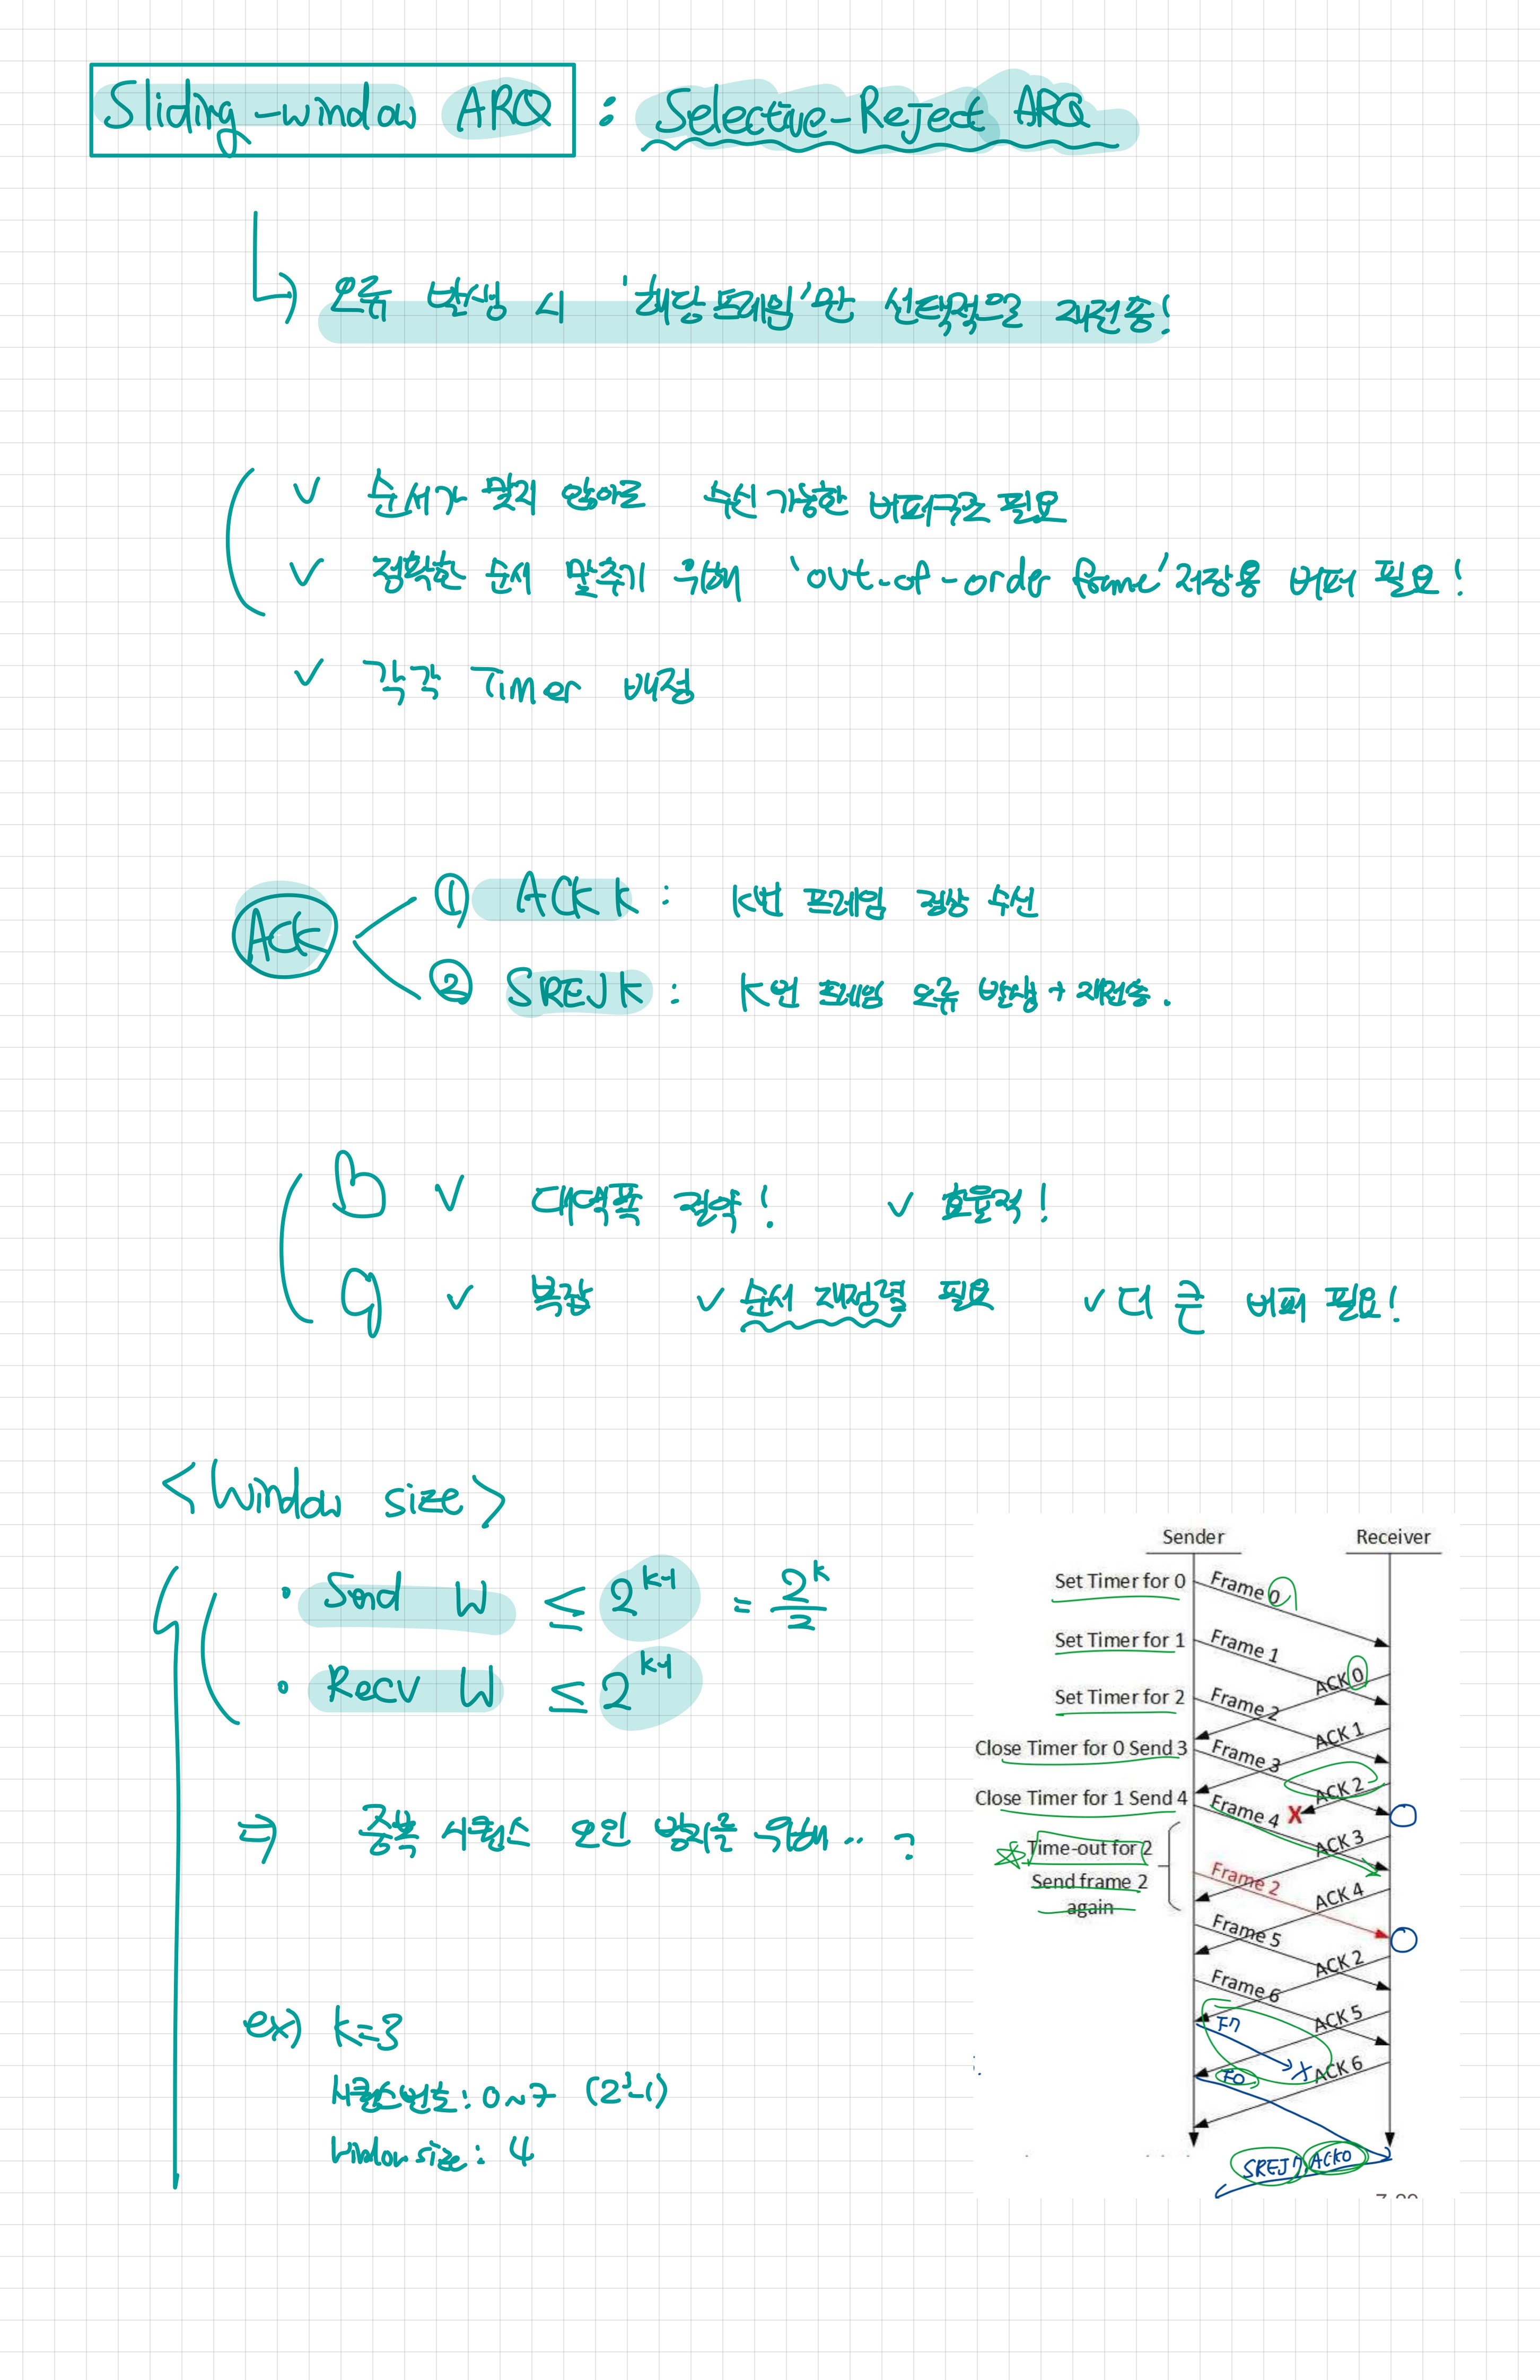 Sliding-window ARQ : Selective-Reject ARQ
↳ 오류 발생 시 '해당프레임'만 선택적으로 재전송!
✓ 순서가 맞지 않아도 수신 가능한 버퍼구조 필요
✓ 정확한 순서 맞추기 위해 'out-of-order frame' 저장용 버퍼 필요!
✓ 각각 Timer 배정
ACK
① ACK K : K번 프레임 정상 수신
② SREJ K : K번 프레임 오류 발생 + 재전송.
✓ 대역폭 절약! ✓ 효율적!
✓ 복잡 ✓ 순서 재정렬 필요 ✓ 더 큰 버퍼 필요!
<Window size>
• Send W ≤ 2^(k-1) = 2^k/2
• Recv W ≤ 2^(k-1)
⇒ 중복 시퀀스 오인 방지를 위해.. ?
ex) k=3
시퀀스번호: 0~7 (2^3-1)
Window size: 4
Sender Receiver
Set Timer for 0
Frame 0
Set Timer for 1
Frame 1
ACK 0
Set Timer for 2
Frame 2
ACK 1
Close Timer for 0 Send 3
Frame 3
ACK 2
Close Timer for 1 Send 4
Frame 4
X
ACK 3
Time-out for 2
Send frame 2
again
Frame 2
ACK 4
Frame 5
ACK 2
Frame 6
ACK 5
F7
X
ACK 6
F0
SREJ 7, ACK0